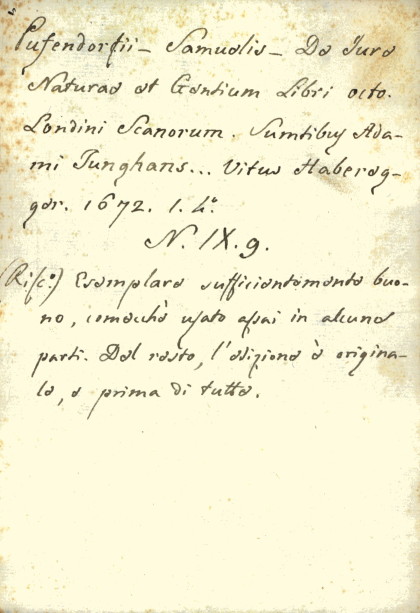 Pufendorfii - Samuelis - De Jure
Naturae et Gentium Libri octo.
Londini Scanorum. Sumtibus Ada-
mi Junghans... Vitus Habereg-
ger. 1672. 1. 4.º
N. IX. 9.
(Risc.º) Esemplare sufficientemente buo-
no, comechè usato assai in alcune
parti. Del resto, l'edizione è origina-
le, e prima di tutte.